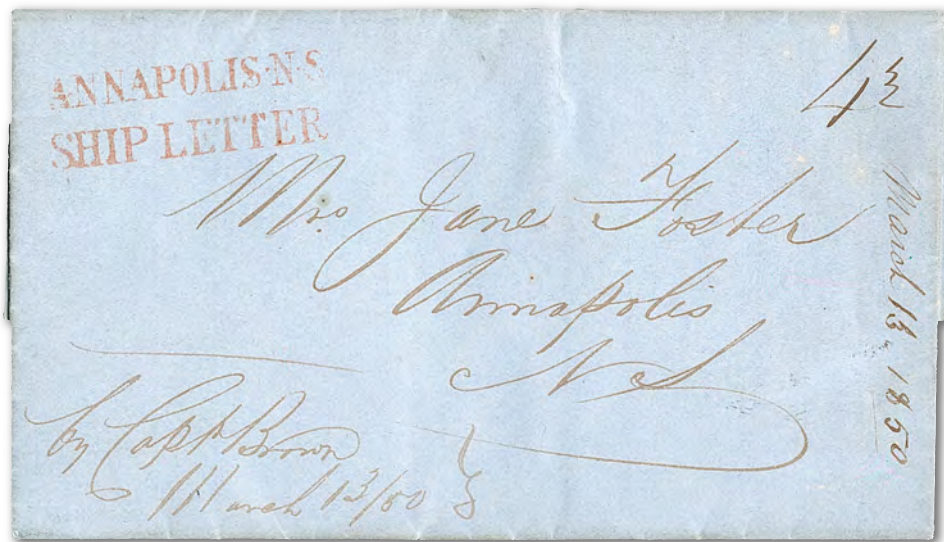 ANNAPOLIS·N·S
SHIP LETTER
4½
Mrs. Jane Foster
Annapolis
N.S
by Capt Brown
March 13/50
March 13, 1850